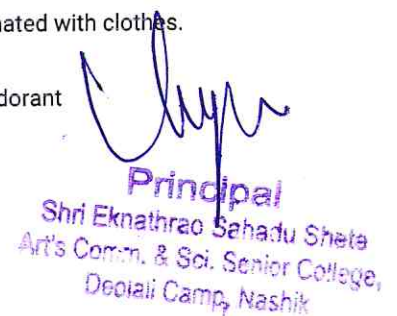 ated with clothes.
dorant
Principal
Shri Eknathrao Sahadu Shete
Art's Comm. & Sci. Senior College,
Deolali Camp, Nashik